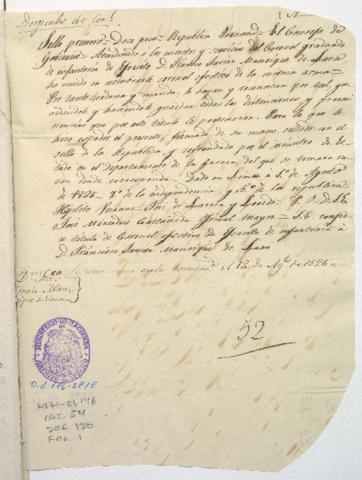 Despacho de Cor.l
Sello primero = Doce pesos = Republica Peruana = El Consejo de
Gobierno = Atendiendo a los meritos y servicios del Coronel graduado
de infanteria de Exercito D. Francisco Javier Manrique de Lara
ha venido en nombrarle coronel efectivo de la misma arma =
Por tanto, ordena y manda, le hayan y reconozcan por tal, gu
ardandole y haciendole guardar todas las distinciones y preemi
nencias que por este titulo le pertenecen. Para lo que le
hizo expedir el presente, firmado de su mano, sellado con el
sello de la Republica, y refrendado por el ministro de Es
tado en el departamento de la guerra, del que se tomara ra
zon donde corresponda. Dado en Lima a 5 de Agosto
de 1826 = 7.º de la independencia, y 5.º de la republica =
Hipolito Unanue = José de Larrea y Loredo = P. O. de S.E.
José Mercedes Castañeda Oficial mayor = S.E. confie
re titulo de Coronel efectivo de Exercito de infanteria à
D. Francisco Javier Manrique de Lara
de Ag.to de 1826
52
MINISTERIO DE HACIENDA
O.L. 146-2816
MH-OL 146
CAJ. 54
DOC 120
FOL. 1